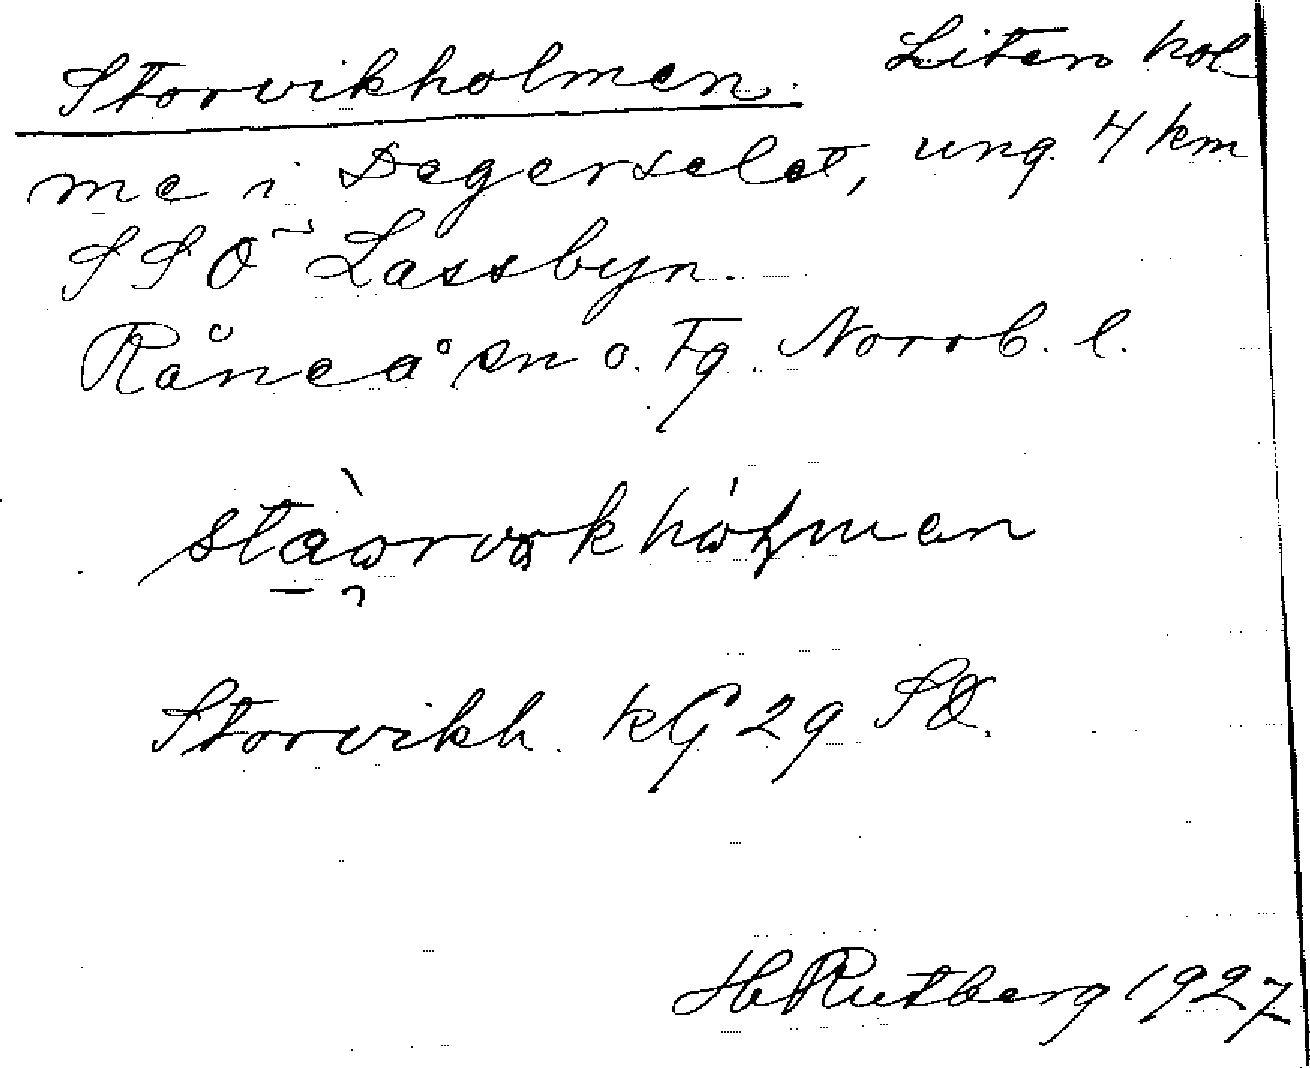 Storvikholmen. Liten hol
me i Degerselet, ung. 4 km
SSÖ Lassbyn.
Råneå sn o. Tg. Norrb. l.
Storvikh. KG 29 SO.
H Rutberg 1927